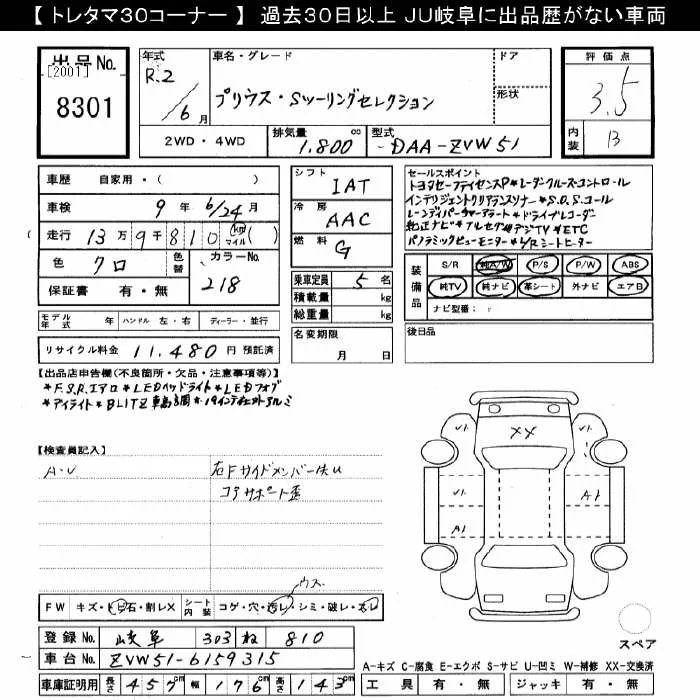 【 トレタマ30コーナー 】 過去30日以上 JU岐阜に出品歴がない車両
出品No.
[2001]
8301
年式
R.2
/6月
車名・グレード
プリウス・Sツーリングセレクション
ドア
形状
2WD・4WD
排気量
1,800 cc
型式
DAA-ZVW51
評価点
3.5
内装
B
車歴 自家用・( )
車検 9年 6/24月
走行 13万9千810 km マイル ( )
色 クロ 色替 カラーNo. 218
保証書 有・無
モデル年式 年 ハンドル 左・右 ディーラー・並行
リサイクル料金 11,480円 預託済
シフト
IAT
冷房
AAC
燃料
G
乗車定員 5名
積載量 kg
総重量 kg
名変期限
月 日
セールスポイント
トヨタセーフティセンスP*レーダークルーズコントロール
インテリジェントクリアランスソナー*S.O.Sコール
レーンディパーチャーアラート*ドライブレコーダー
純正ナビ*フルセグ地デジTV*ETC
パノラミックビューモニター*L/Rシートヒーター
装備品
S/R 純A/W P/S P/W ABS
純TV 純ナビ 革シート 外ナビ エアB
ナビ型番:
後日品
【出品店申告欄(不良箇所・欠品・注意事項等)】
*F.S.Rエアロ*LEDヘッドライト*LEDフォグ
*アイライト*BLITZ車高調*19インチ社外アルミ
【検査員記入】
A・U
右Fサイドメンバー凹U
コアサポート歪
U1
XX
U1
A1
A1
FW キズ・トビ石・割レX シート内装 コゲ・穴・汚レ・シミ・破レ・スレ
ウス
登録No. 岐阜 303 ね 810
車台No. ZVW51-6159315
車庫証明用 長さ 457cm 幅 176cm 高さ 143cm
スペア
A-キズ C-腐食 E-エクボ S-サビ U-凹ミ W-補修 XX-交換済
工具 有・無 ジャッキ 有・無